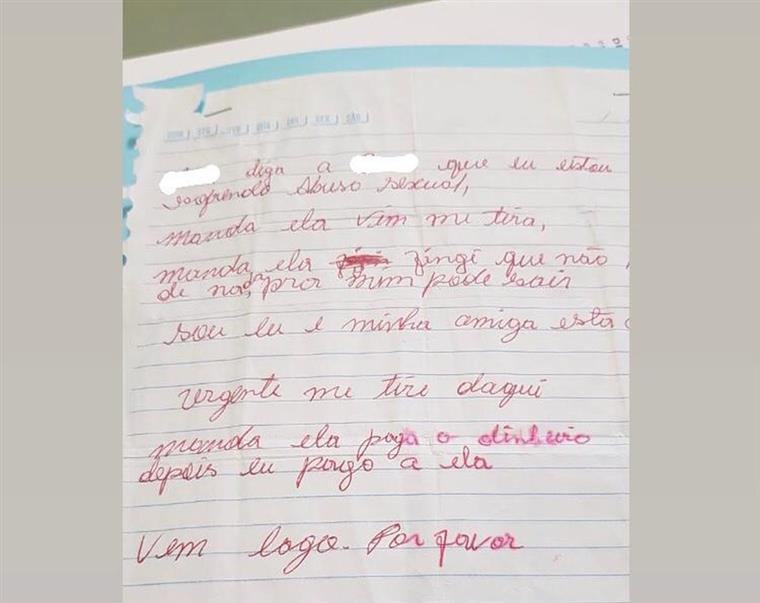 DOM SEG TER QUA QUI SEX SÁB
diga a que eu estou
sofrendo abuso sexual,
manda ela vim me tira,
manda ela fingi que não
de nada, pra mim pode sair
sou eu e minha amiga esta
urgente me tire daqui
manda ela paga o dinheiro
depois eu pago a ela
Vem logo. Por favor